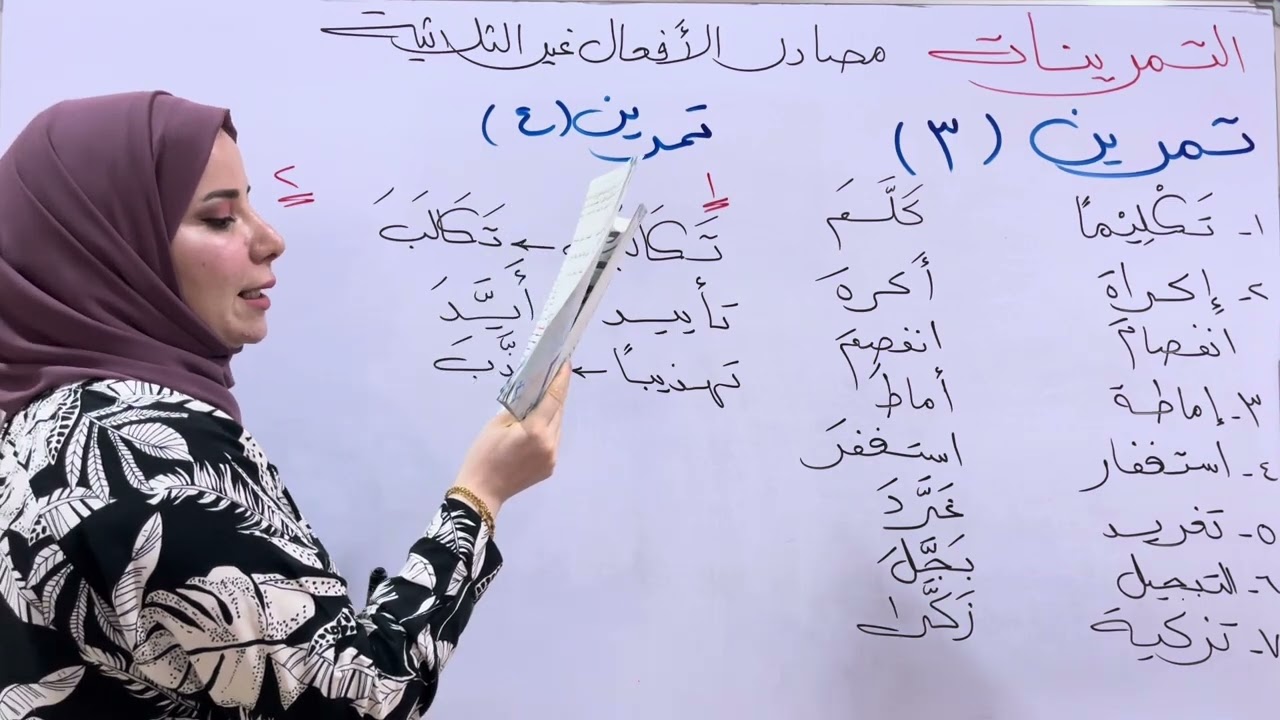 التمرينات مصادر الأفعال غير الثلاثية
تمرين (٣)
١- تَكْلِيْمًا كَلَّمَ
٢- إكراهَ أَكرهَ
انفصامَ انفصمَ
٣- إماطة أماطَ
٤- استغفار استغفرَ
٥- تغريد غَرَّدَ
٦- التبجيل بَجَّلَ
٧- تزكية زَكَّى
تمرين (٤)
١
← تَكَالَبَ
تأييد أَيَّدَ
تهذيباً ←
٢